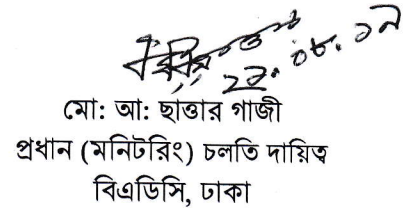 ২৯.০৮.১৯
মো: আ: ছাত্তার গাজী
প্রধান (মনিটরিং) চলতি দায়িত্ব
বিএডিসি, ঢাকা